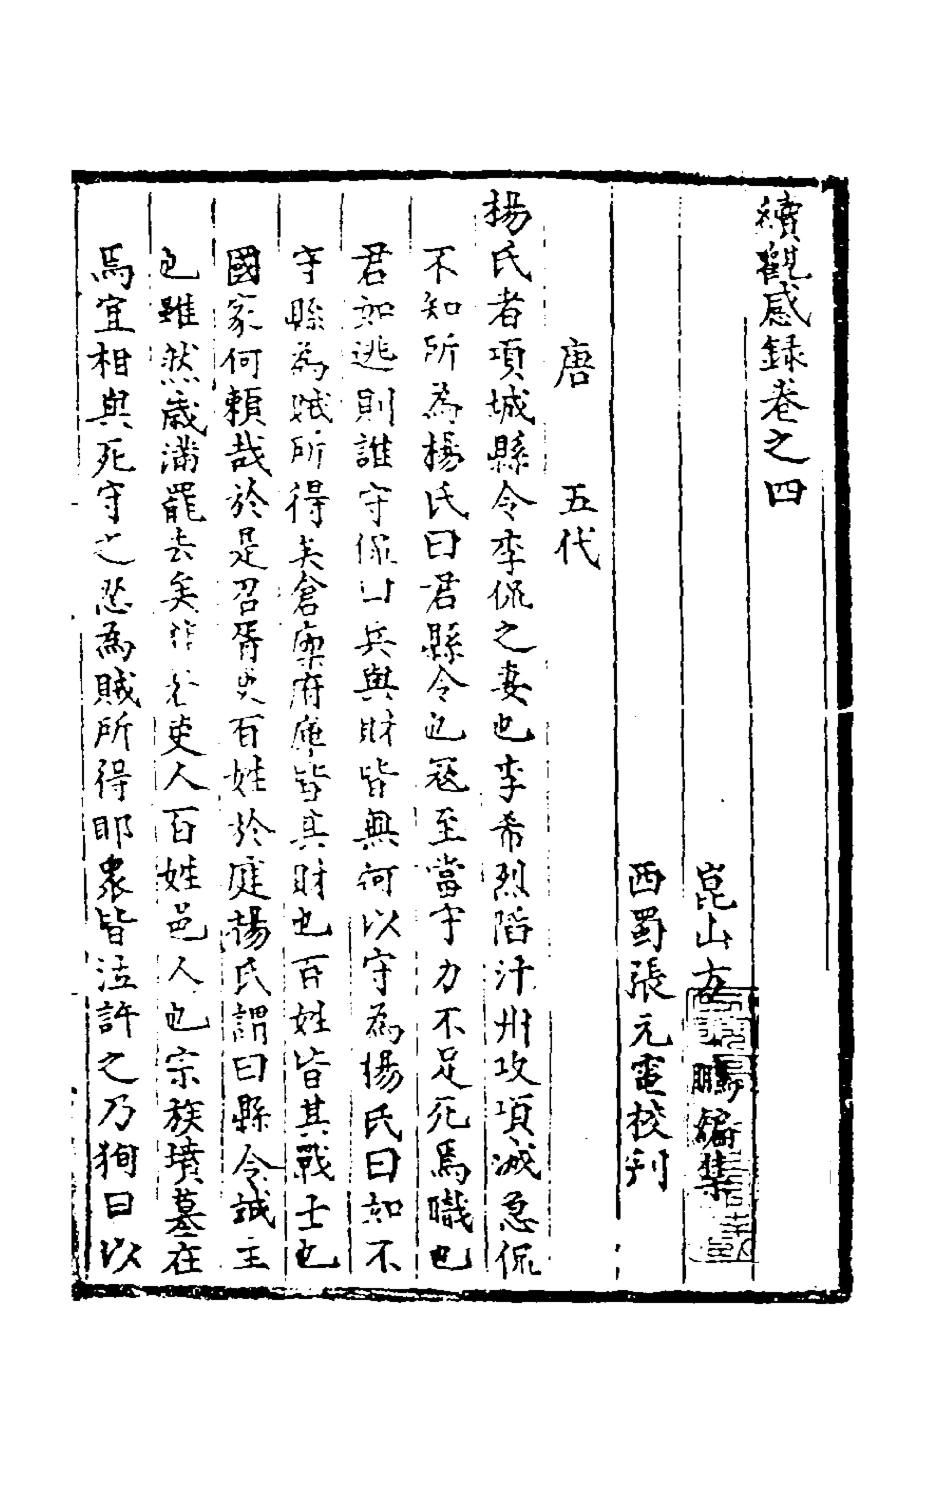 續觀感録卷之四
崑山方鵬編集
西蜀張元電校刋
唐　五代
楊氏者項城縣令李侃之妻也李希烈陷汴州攻項城急侃
不知所為楊氏曰君縣令也冦至當守力不足死焉職也
君如逃則誰守侃曰兵與財皆無何以守為楊氏曰如不
守縣為賊所得矣倉廩府庫皆其財也百姓皆其戰士也
國家何賴哉於是召胥吏百姓於庭楊氏謂曰縣令誠主
也雖然歳滿罷去矣非若吏人百姓邑人也宗族墳墓在
焉宜相與死守之忍為賊所得耶衆皆泣許之乃狥曰以